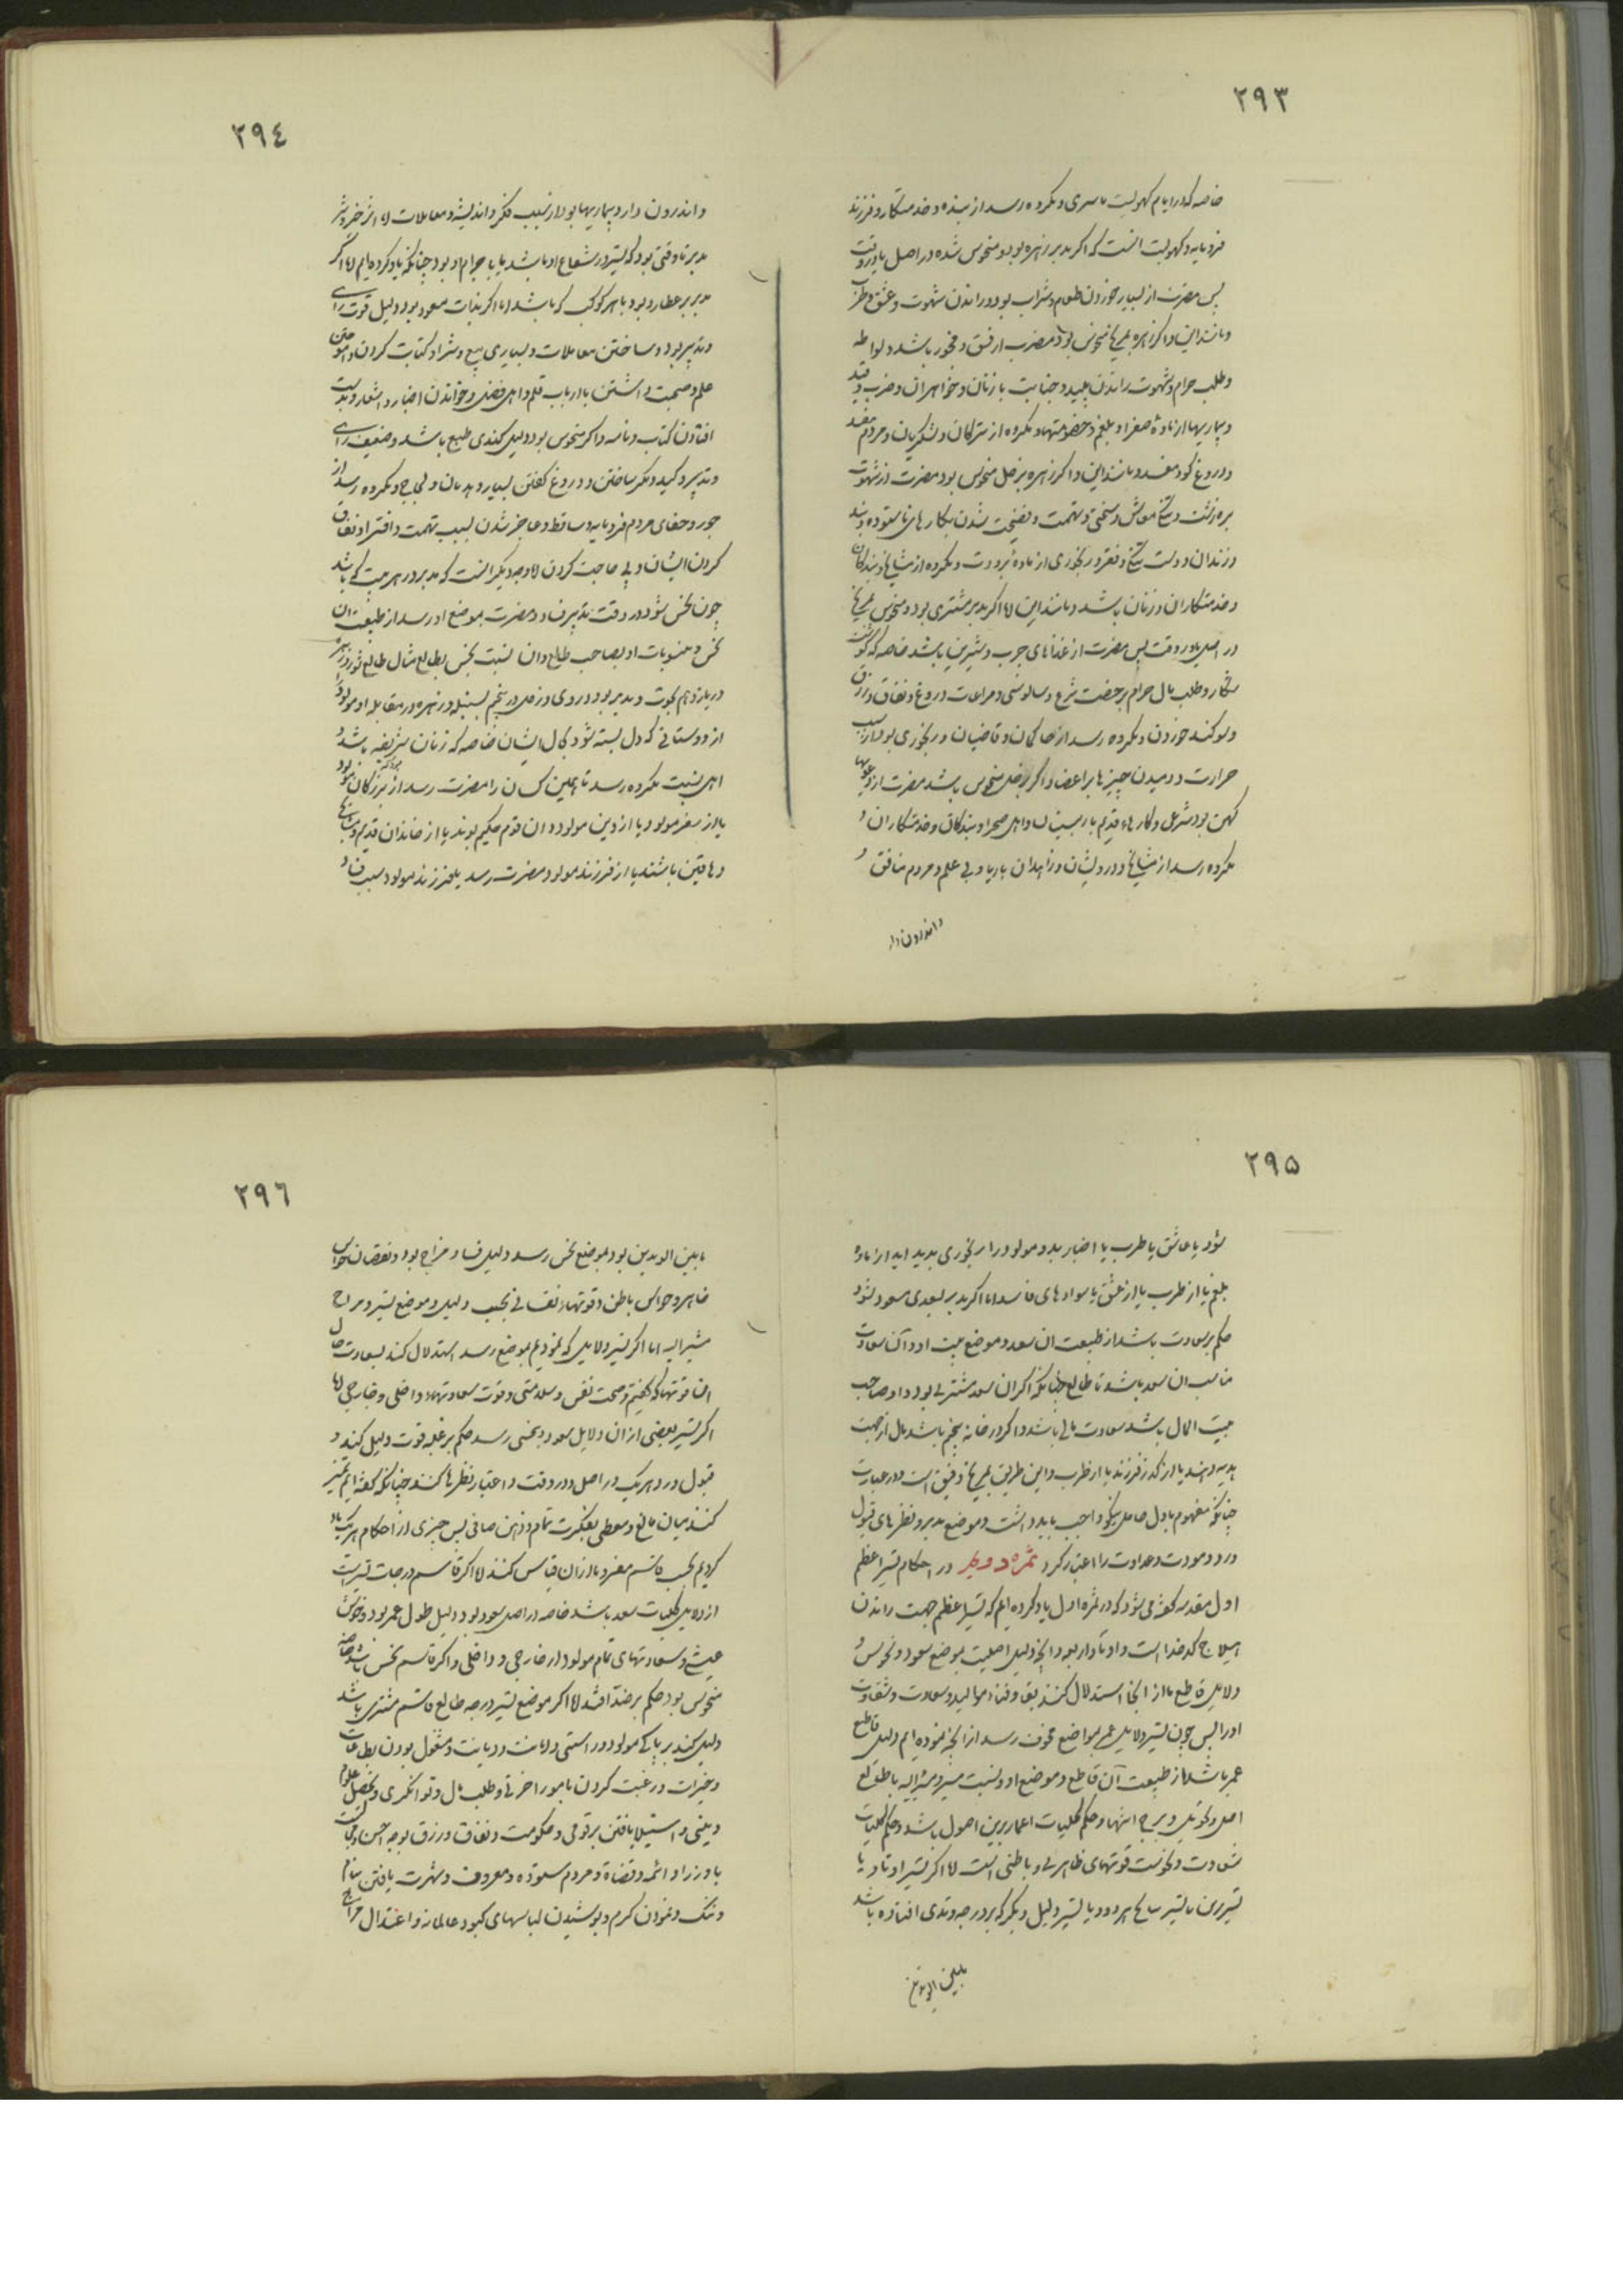 ٢٩٣
خاصه که در ایام کهولت باسری و مکروه رسد از بنده و خدمتکار و فرزند
فرومایه و کهولت انست که اگر مدبر زهره بود و منحوس شده در اصل یا در وقت
پس مضرت از بسیار خوردن طعام و شراب بود و راندن شهوت و عشق و طرب
و مانند این و اگر زهره بمریخ منحوس بود مضرت از فسق و فجور باشد و لواطه
و طلب حرام و شهوت راندن پلید و جنایت با زنان و خواهران و ضرب و قید
و بیماریها از ماده صفرا و بلغم و خصومتها و مکروه از ترکان و لشکریان و مردم مفسد
و دروغ گو و مفسد و مانند این و اگر زهره بزحل منحوس بود مضرت از شهوت
بره زشت و تنگی معاش و سختی و تهمت و فضیحت شدن بکارهای ناستوده و بند
و زندان و دست تنگی و فقر و رنجوری از ماده برودت و مکروه از مشایخ و بندکان
و خدمتکاران و زنان باشد و مانند این اما اکر مدبر مشتری بود و منحوس بمریخ
در اصل یا در وقت پس مضرت از غذاهای چرب و شیرین باشد خاصه که گوشت
شکار و طلب مال حرام برخصت شرع و سالوسی و مراعات دروغ و نفاق و زرق
و سوکند خوردن و مکروه رسد از حاکمان و قاضیان و رنجوری بود از سبب
حرارت و دمیدن چیزها بر اعضا و اکر بزحل منحوس باشد مضرت از دعویها
کهن بود شرعی و کارهاء قدیم با رسیدن و اهل صحرا و بندکان و خدمتکاران و
مکروه رسد از مشایخ و درویشان و زاهدان باریا و بی علم و مردم منافق و
و اندرون دار
٢٩٤
و اندرون دار و بیماریها بود از سبب فکر و اندیشه و معاملات اما اثر خیر و شر
مدبر تا وقتی بود که تسییر در شعاع او باشد یا با جرام او بود چنانکه یاد کرده ایم اما اکر
مدبر عطارد بود با هر کوکب که باشد اما اکر بذات مسعود بود دلیل قوت رای
و تدبیر بود و ساختن معاملات و بسیاری بیع و شرا و کتابت کردن و اموختن
علم و صحبت داشتن با ارباب قلم و اهل فضل و خواندن اخبار و اشعار و بدست
افتادن کتاب و نامه و اکر منحوس بود دلیل کندی طبع باشد و ضعیف رای
و تدبیر و کید و مکر ساختن و دروغ گفتن بسیار و هذیان و لجاج و مکروه رسد از
جور و جفای مردم فرومایه و ساقط و عاجز شدن بسبب تهمت و افترا و نفاق
کردن ایشان و بی حاجت کردن اما وجه دیگر انست که مدبر در هر بیت که باشد
چون نحس شود در وقت تدبیر فساد و مضرت بموضع او رسد از طبیعت ان
نحس و منسوبات او بصاحب طالع و ان نسبت نحس بطالع مثال طالع ثور و زهره
در یازدهم بحوت و مدبر بود در وی و زحل در پنجم بسنبله و زهره در مقابله او مولود را
از دوستانی که دل بسته شود بمال ایشان خاصه که زنان شریفه باشد و
اهل نسبت مکروه رسد تا همین کسان را مضرت رسد از بزرکان مولود
یا از سفر مولود یا از دین مولود و ان قوم حکیم بوند یا از خاندان قدیم و مشایخ
و دهاقین باشند یا از فرزند مولود مضرت رسد یا فرزند مولود سبب فساد
٢٩٥
شود یا عاشق یا طرب یا اخبار بد و مولود را رنجوری پدید اید از ماده
بلغم یا از طرب یا از عشق یا سوادهای فاسد اما اکر مدبر بسعدی مسعود شود
حکم بر سعادت باشد از طبیعت ان سعد و موضع بیت او و آن سعادت
مناسب ان سعد باشد تا طالع چنانکه اکر ان سعد مشتری بود و او صاحب
بیت المال باشد سعادت مالی باشد و اکر در خانه پنجم باشد مال از جهت
هدیه و هند یا از گذر فرزند یا از طرب و این طریق بمریخ دقیق است و در عبارت
چنانکه مفهوم یا دل حاصل بیکو واجب باید داشت و موضع مدبر و نظرهای قبول
و رد و مودت و عداوت را اعتبار کرد ثمره دویم در احکام تسییر اعظم
اول مقدمه گفته می شود که در ثمره اول یاد کرده ایم که تسییر اعظم جهت راندن
هیلاج کدخداست و اوتاد از بعد و انچه دلیل اصلیست بموضع سعود و نحوس و
دلایل قاطع ما از انجا استدلال کنند بقا و فناء موالید و سعادت و شقاوت
او را پس چون تسییر دلایل عمر بمواضع مخوف رسد از انچه نموده ایم دلیل قاطع
عمر باشد از طبیعت آن قاطع و موضع او و نسبت مسیر و مشار الیه با طالع
اصل و تحویل و برج انتها و حکم کلیات اعمار برین اصول باشد و حکم کلیات
سعادت و نحوست قوتهای ظاهری و باطنی است اما اکر تسییر اوتاد یا
تسییرین یا تسییر سایح هر دو و یا تسییر دلیل دیگر که بر درجه وتدی افتاده باشد
مابین الوتدین
٢٩٦
مابین الوتدین بود بموضع نحس رسد دلیل فساد مزاج بود و نقصان حواس
ظاهر و حواس باطن و قوتهاء نفسانی بحسب دلیل و موضع تسییر و مزاج
مشیر الیه اما اکر تسییر دلایل که نمودیم بموضع رسد استدلال کند بسعادت حال
ان قوتها که گفتیم و صحت نفس و سلامتی و قوت سعادتهاء داخلی و خارجی اما
اکر تسییر بعضی از ان دلایل سعود و بنحس رسد حکم بر غلبه قوت دلیل کند و
قبول و رد هریک در اصل و در وقت و اعتبار نظرها کنند چنانکه گفته ایم تمییز
کنند میان مانع و معطی بفکرت تمام و ذهن صافی پس چیزی از احکام هریک یاد
کردیم بحسب قاسم مفرد تا از ان قیاس کنند اما اکر قاسم درجات تسییرات
از دلایل کلیات سعد باشد خاصه در اصل مسعود بود دلیل طول عمر بود و خوش
عیشی و سعادتهای تمام مولود از خارجی و داخلی و اکر قاسم نحس باشد و خاصه
منحوس بود حکم بر ضد افتد اما اکر موضع تسییر درجه طالع قاسم مشتری باشد
دلیل کند بر پاکی مولود و راستی و امانت و دیانت و مشغول بودن بطاعات
و خیرات و رغبت کردن بامور اخرتی و طلب مال و توانگری و تحصیل علوم
دینی و استیلا یافتن بر قومی و حکومت و نفاق و رزق بوجه احسن و
با وزرا و ائمه و قضاة و مردم ستوده و معروف و شهرت یافتن بنام
و ننگ و نمودن کرم و پوشیدن لباسهای کبود عالمانه و اعتدال مزاج